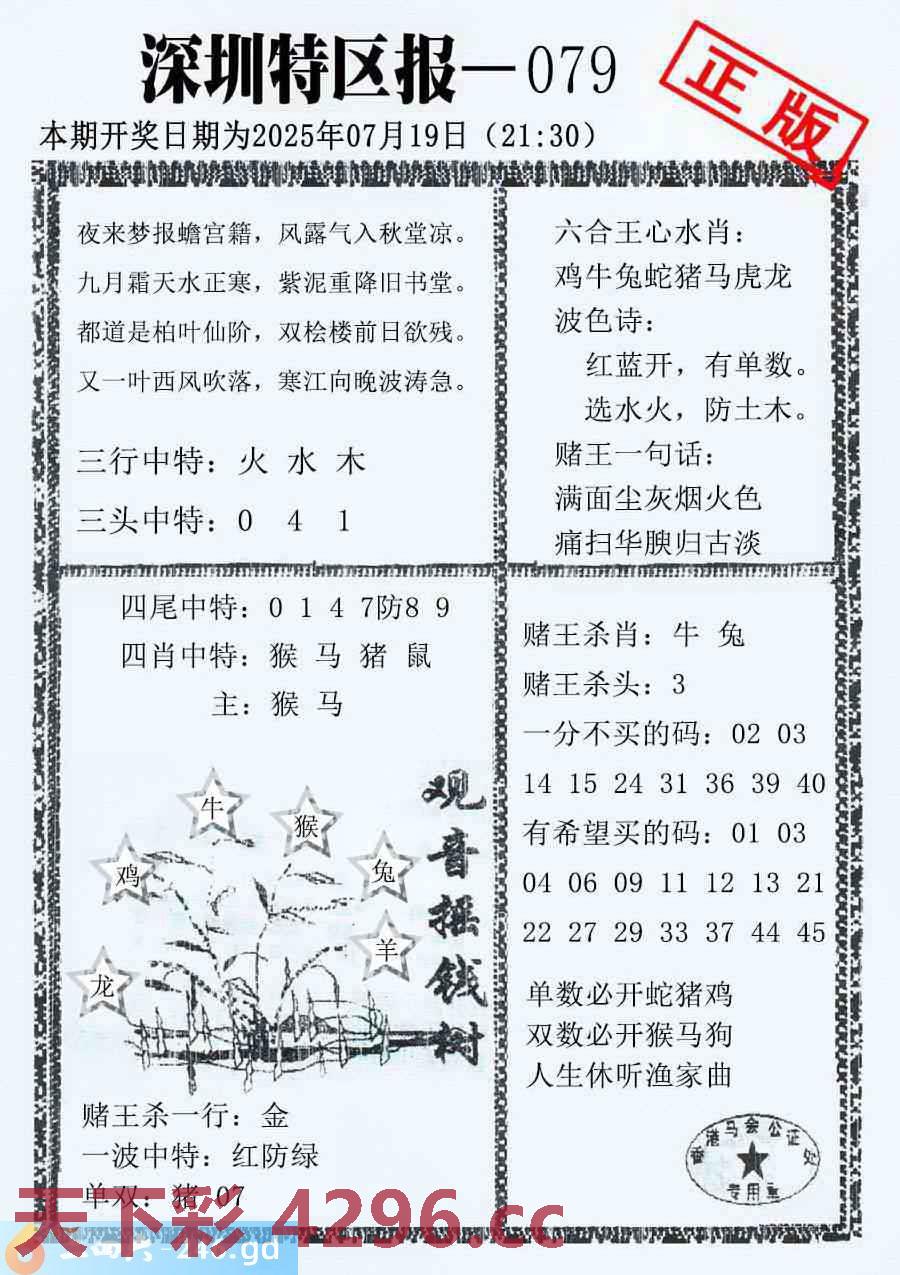 深圳特区报—079
正版
本期开奖日期为2025年07月19日（21:30）
夜来梦报蟾宫籍，风露气入秋堂凉。
九月霜天水正寒，紫泥重降旧书堂。
都道是柏叶仙阶，双桧楼前日欲残。
又一叶西风吹落，寒江向晚波涛急。
三行中特：火 水 木
三头中特：0 4 1
六合王心水肖：
鸡牛兔蛇猪马虎龙
波色诗：
红蓝开，有单数。
选水火，防土木。
赌王一句话：
满面尘灰烟火色
痛扫华腴归古淡
四尾中特：0 1 4 7防8 9
四肖中特：猴 马 猪 鼠
主：猴 马
牛
猴
鸡
兔
羊
龙
观音摇钱树
赌王杀一行：金
一波中特：红防绿
单双：猪 07
赌王杀肖：牛 兔
赌王杀头：3
一分不买的码：02 03
14 15 24 31 36 39 40
有希望买的码：01 03
04 06 09 11 12 13 21
22 27 29 33 37 44 45
单数必开蛇猪鸡
双数必开猴马狗
人生休听渔家曲
香港马会公证处
专用章
天下彩 4296.cc